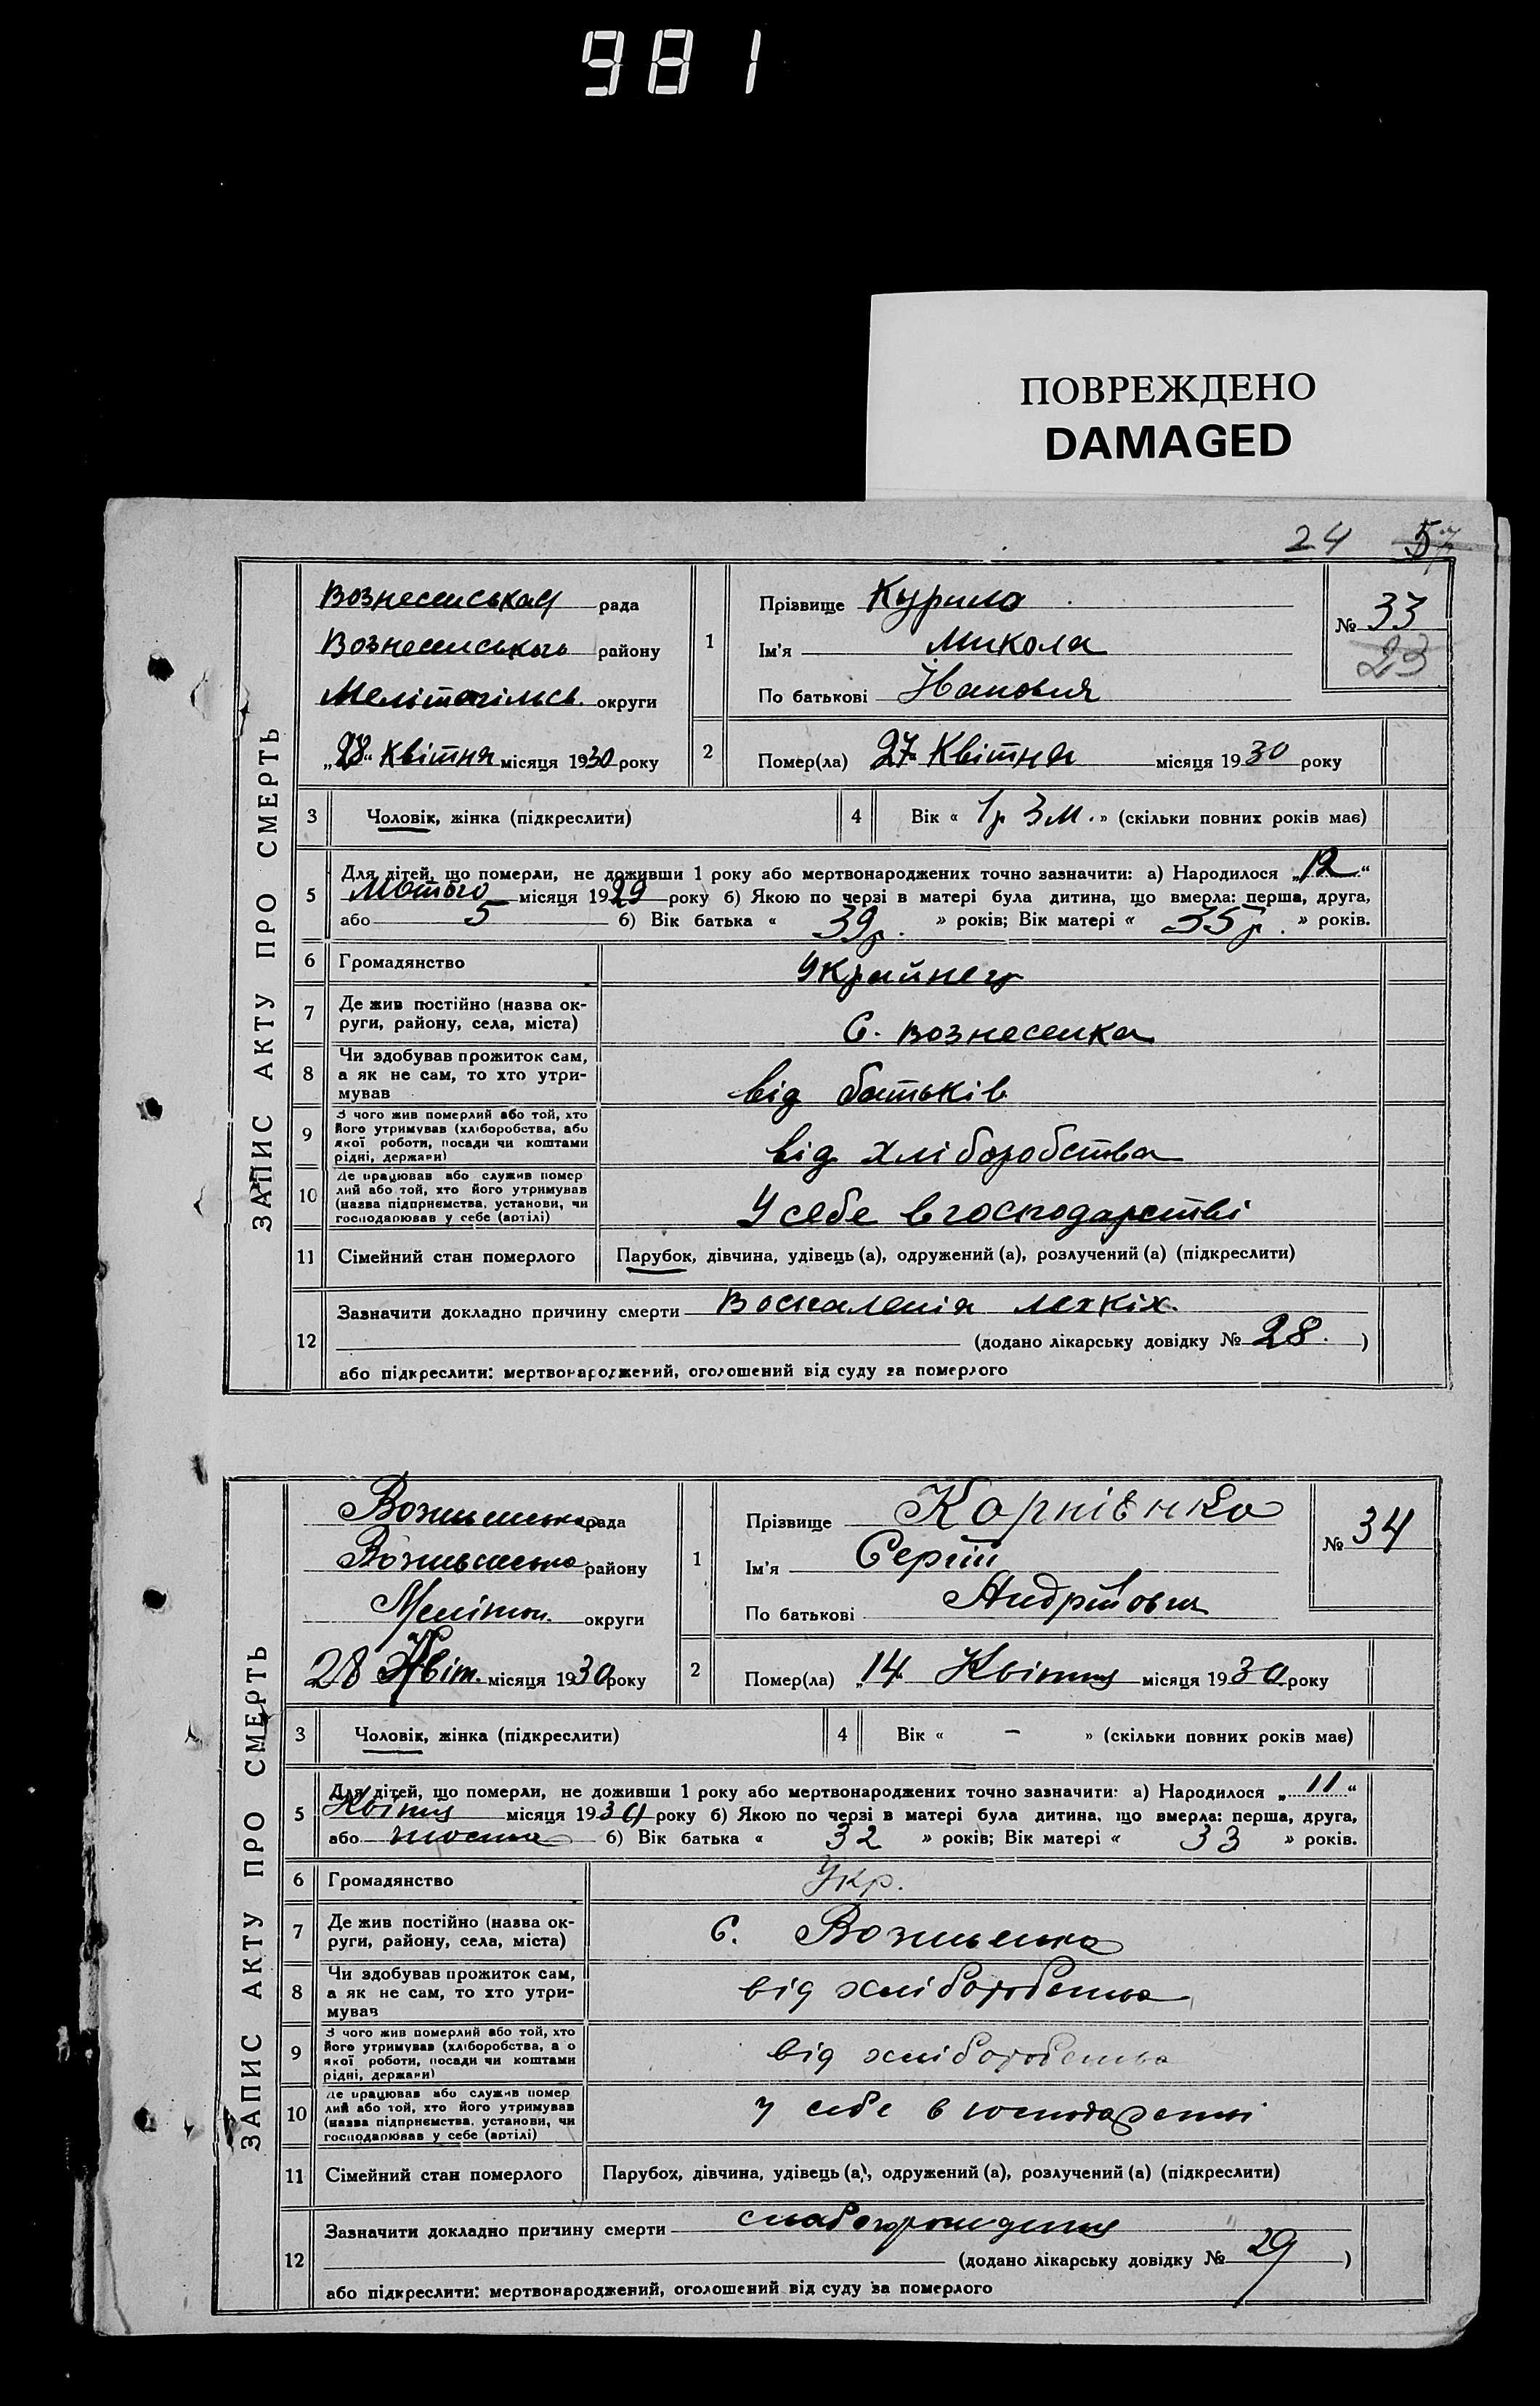 981
ПОВРЕЖДЕНО
DAMAGED
24 57
ЗАПИС АКТУ ПРО СМЕРТЬ
Вознесенська рада
Вознесенського району
Мелітопільсь. округи
„28“ Квітня місяця 1930 року
1 Прізвище Курило
Ім'я Микола
По батькові Іванович
№ 33
23
2 Помер(ла) 27 Квітня місяця 1930 року
3 Чоловік, жінка (підкреслити)
4 Вік « 1 р 3 м. » (скільки повних років має)
5 Для дітей, що померли, не доживши 1 року або мертвонароджених точно зазначити: а) Народилося „12“
Лютого місяця 1929 року б) Якою по черзі в матері була дитина, що вмерла: перша, друга,
або 5 б) Вік батька « 39 р. » років; Вік матері « 35 р. » років.
6 Громадянство Украйнец
7 Де жив постійно (назва ок-
руги, району, села, міста) С. Вознесенка
8 Чи здобував прожиток сам,
а як не сам, то хто утри-
мував від батьків
9 З чого жив померлий або той, хто
його утримував (хліборобства, або
якої роботи, посади чи коштами
рідні, держави) від хліборобства
10 Де працював або служив помер
лий або той, хто його утримував
(назва підприємства, установи, чи
господарював у себе (артілі) У себе в господарстві
11 Сімейний стан померлого Парубок, дівчина, удівець (а), одружений (а), розлучений (а) (підкреслити)
12 Зазначити докладно причину смерти Воспаленія лехкіх.
(додано лікарську довідку № 28. )
або підкреслити: мертвонароджений, оголошений від суду за померлого
ЗАПИС АКТУ ПРО СМЕРТЬ
рада
району
Мелітоп. округи
28 Квіт. місяця 1930 року
1 Прізвище Карпієнко
Ім'я Сергій
По батькові Андрійович
№ 34
2 Помер(ла) „14 Квітня місяця 1930 року
3 Чоловік, жінка (підкреслити)
4 Вік « – » (скільки повних років має)
5 Для дітей, що померли, не доживши 1 року або мертвонароджених точно зазначити: а) Народилося „11“
Квітня місяця 1930 року б) Якою по черзі в матері була дитина, що вмерла: перша, друга,
або шоста б) Вік батька « 32 » років; Вік матері « 33 » років.
6 Громадянство Укр.
7 Де жив постійно (назва ок-
руги, району, села, міста) С. Вознесенка
8 Чи здобував прожиток сам,
а як не сам, то хто утри-
мував від хліборобства
9 З чого жив померлий або той, хто
його утримував (хліборобства, а о
якої роботи, посади чи коштами
рідні, держави) від хліборобства
10 Де працював або служив помер
лий або той, хто його утримував
(назва підприємства, установи, чи
господарював у себе (артілі) у себе в господарстві
11 Сімейний стан померлого Парубок, дівчина, удівець (а), одружений (а), розлучений (а) (підкреслити)
12 Зазначити докладно причину смерти слаборождения
(додано лікарську довідку № 29 )
або підкреслити: мертвонароджений, оголошений від суду за померлого